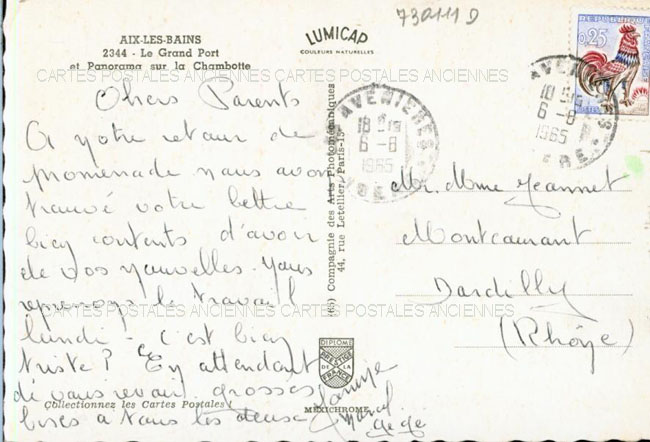 730111 D
AIX-LES-BAINS
2344 - Le Grand Port
et Panorama sur la Chambotte
LUMICAP
COULEURS NATURELLES
CARTES POSTALES ANCIENNES CARTES POSTALES ANCIENNES
Chers Parents
A votre retour de
promenade nous avons
trouvé votre lettre
bien contents d'avoir
de vos nouvelles. Nous
reprenons le travail
lundi - c'est bien
triste ? En attendant
de vous revoir grosses
bises à tous les deux
Marcel
gégé
Collectionnez les Cartes Postales !
(65) Compagnie des Arts Photomécaniques
44, rue Letellier, Paris-15e
DIPLOME
PRESTIGE
DE LA
FRANCE
MEXICHROME
REPUBLIQUE
0,25
AVENIERES
18 H 19
6 - 8
1965
AVENIERES
18 H
6 - 8
1965
Mr. Mme Jeannet
Montcourant
Dardilly
(Rhône)
CARTES POSTALES ANCIENNES CARTES POSTALES ANCIENNES